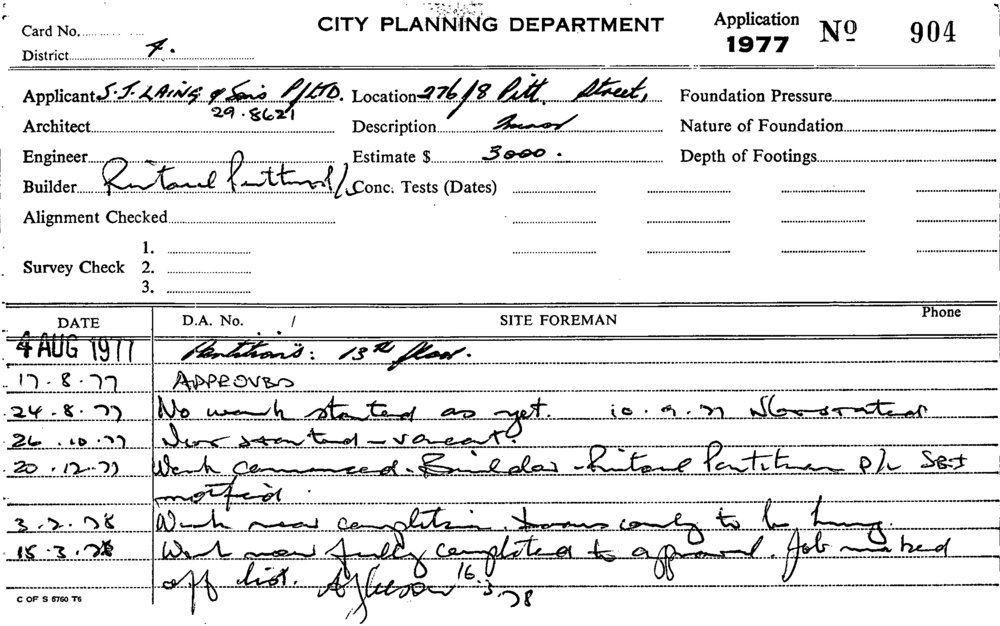 CITY PLANNING DEPARTMENT
Card No.
Application 1977 No 904
District 4.
Applicant S. J. LAING & Sons P/LTD. Location 276/8 Pitt Street, Foundation Pressure
29.8621
Architect Description Minor Nature of Foundation
Engineer Estimate $ 3000. Depth of Footings
Builder Conc. Tests (Dates)
Alignment Checked
1.
Survey Check 2.
3.
DATE D.A. No. / SITE FOREMAN Phone
4 AUG 1977 Partitions: 13th floor.
17.8.77 APPROVED
24.8.77 No work started as yet. 10.9.77 Not started
26.10.77 started - vacant.
20.12.77 Work commenced - Builder - Partition P/L SB-I
notified.
3.2.78 Work near completion. doors only to be hung.
15.3.78 Work now fully completed to approval. Job marked
off list. 16.3.78
C OF S 5760 T6